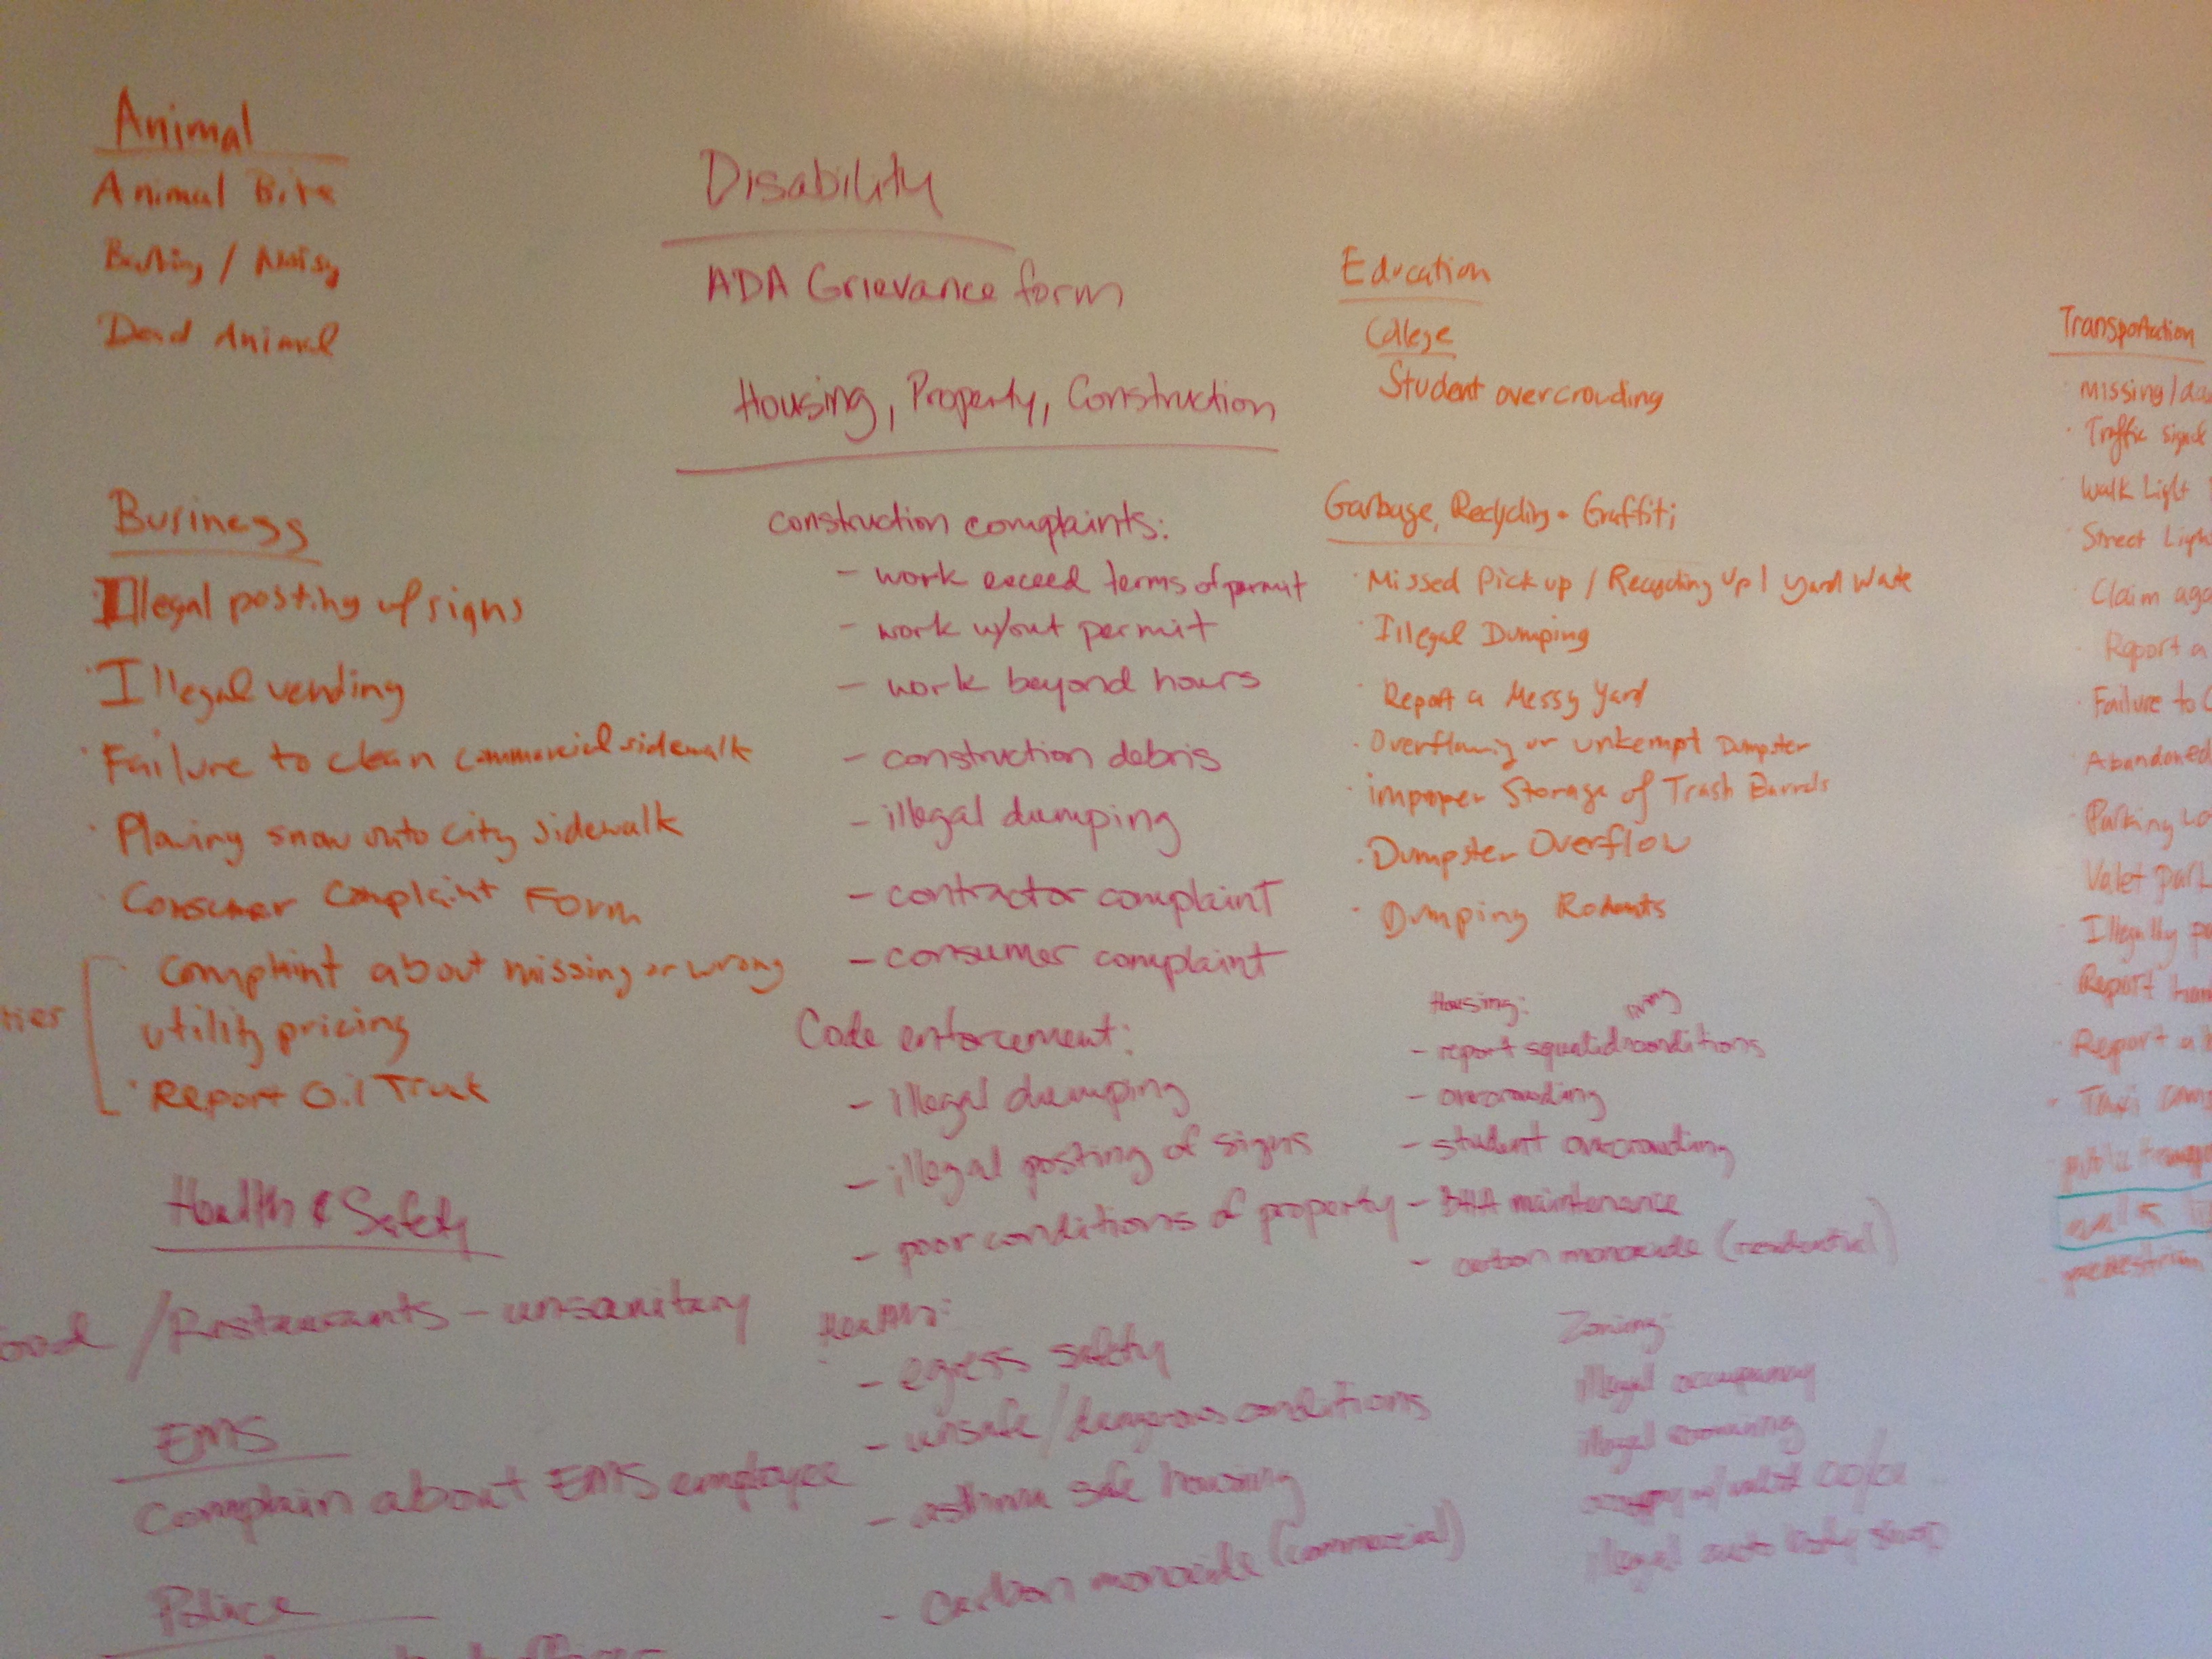 Animal
Animal Bite
Barking / Noisy
Dead Animal
Business
Illegal posting of signs
Illegal vending
Failure to clean commercial sidewalk
Plowing snow onto city sidewalk
Consumer Complaint Form
Complaint about missing or wrong
utility pricing
Report Oil Truck
Health & Safety
/Restaurants - unsanitary
EMS
Complain about EMS employee
Police
Disability
ADA Grievance form
Housing, Property, Construction
construction complaints:
- work exceed terms of permit
- work w/out permit
- work beyond hours
- construction debris
- illegal dumping
- contractor complaint
- consumer complaint
Code enforcement:
- illegal dumping
- illegal posting of signs
- poor conditions of property
Health:
- egress safety
- unsafe/dangerous conditions
- asthma safe housing
- carbon monoxide (commercial)
Education
College
Student overcrowding
Garbage, Recycling + Graffiti
Missed Pick up / Recycling up / yard Waste
Illegal Dumping
Report a Messy Yard
Overflowing or unkempt Dumpster
improper Storage of Trash Barrels
Dumpster Overflow
Dumping Rodents
Housing:
- report squalid living conditions
- overcrowding
- student overcrowding
- BHA maintenance
- carbon monoxide (residential)
Zoning:
illegal occupancy
illegal
illegal auto body shop
Transportation
Missing/
Traffic
Walk Light
Street
Claim
Report a
Failure to
Abandoned
Parking
Valet
Illegally
Report
Report a
Taxi